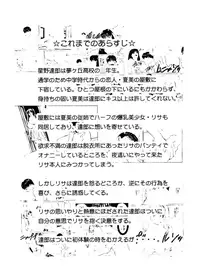 ☆これまでのあらすじ☆
星野達郎は夢ヶ丘高校の一年生。
通学のため中学時代からの恋人・夏美の屋敷に
下宿している。ひとつ屋根の下にもかかわらず、
身持ちの固い夏美は達郎にキス以上は許してくれない。
屋敷には夏美の従姉でハーフの爆乳美少女・リサも
同居しており、達郎に露骨に迫ってくる。
欲求不満の達郎は脱衣所にあったリサのパンティで
オナニーしているところを、夜這いにやって来た
リサ本人にみつかってしまう。
しかしリサは達郎を怒るどころか、逆にその行為を
喜び、さらに誘惑してくる。
リサの思いやりと熱意にほだされた達郎はついに
自分の意思でリサを抱く決意をする。
達郎はついに初体験の時をむかえるが・・・・・